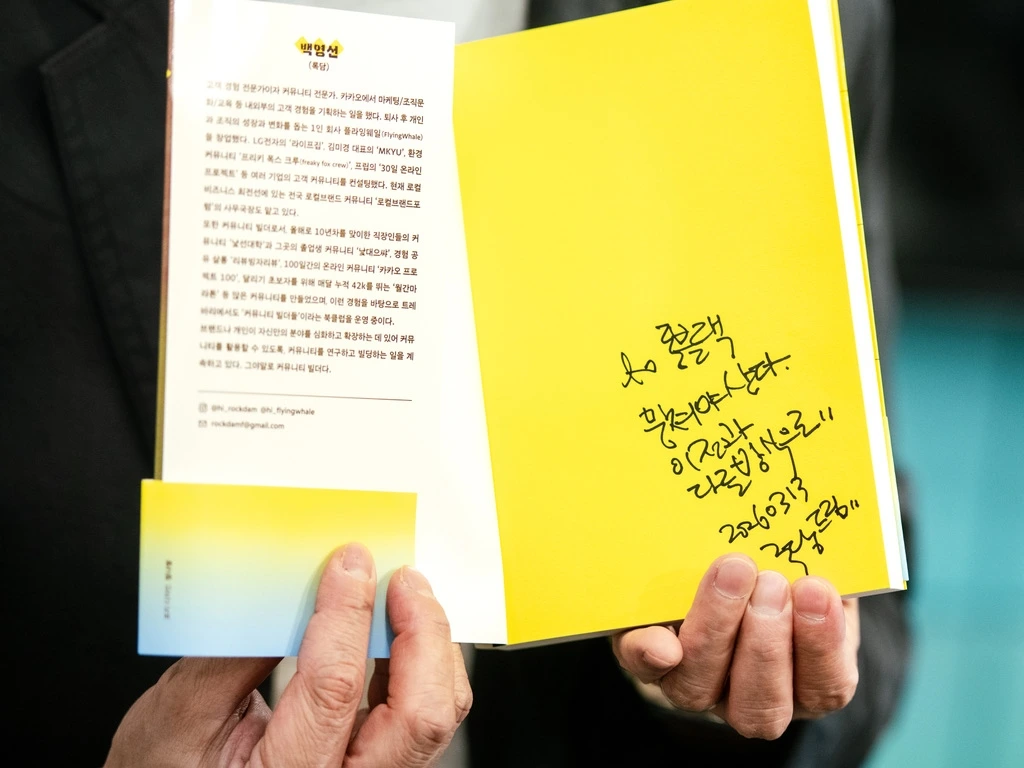 백영선
(록담)
고객 경험 전문가이자 커뮤니티 전문가. 카카오에서 마케팅/조직문
화/교육 등 내외부의 고객 경험을 기획하는 일을 했다. 퇴사 후 개인
과 조직의 성장과 변화를 돕는 1인 회사 플라잉웨일(FlyingWhale)
을 창업했다. LG전자의 '라이프집', 김미경 대표의 'MKYU', 환경
커뮤니티 '프리키 폭스 크루(freaky fox crew)', 프립의 '30일 온라인
프로젝트' 등 여러 기업의 고객 커뮤니티를 컨설팅했다. 현재 로컬
비즈니스 최전선에 있는 전국 로컬브랜드 커뮤니티 '로컬브랜드포
럼'의 사무국장도 맡고 있다.
또한 커뮤니티 빌더로서, 올해로 10년차를 맞이한 직장인들의 커
뮤니티 '낯선대학'과 그곳의 졸업생 커뮤니티 '낯대으쌰', 경험 공
유 살롱 '리뷰빙자리뷰', 100일간의 온라인 커뮤니티 '카카오 프로
젝트 100', 달리기 초보자를 위해 매달 누적 42k를 뛰는 '월간마
라톤' 등 많은 커뮤니티를 만들었으며, 이런 경험을 바탕으로 트레
바리에서도 '커뮤니티 빌더들'이라는 북클럽을 운영 중이다.
브랜드나 개인이 자신만의 분야를 심화하고 확장하는 데 있어 커뮤
니티를 활용할 수 있도록, 커뮤니티를 연구하고 빌딩하는 일을 계
속하고 있다. 그야말로 커뮤니티 빌더다.
@hi_rockdam @hi_flyingwhale
rockdamf@gmail.com
to 롤랙
뭉쳐야 산다.
이전과
다른 방식으로"
20260313
록담드림"